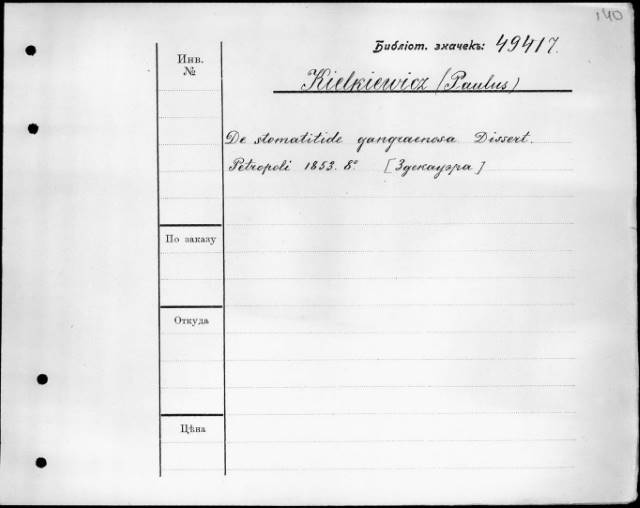 140
Библіот. значекъ: 49417.
Инв. №
Kielkiewicz (Paulus)
De stomatitide gangraenosa. Dissert.
Petropoli 1853. 8° [Здекауэра]
По заказу
Откуда
Цѣна